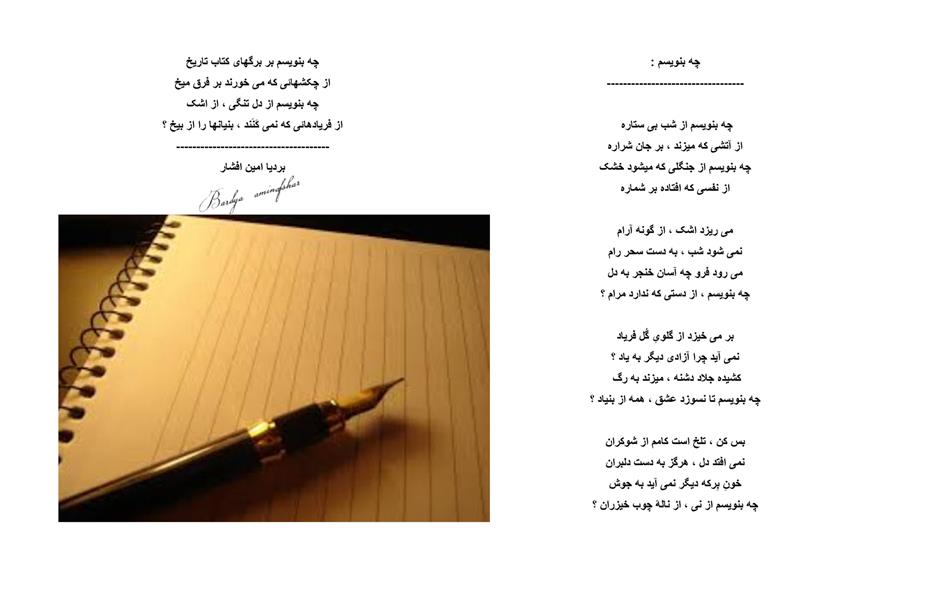 چه بنویسم :
----------------------------------
چه بنویسم از شب بی ستاره
از آتشی که میزند ، بر جان شراره
چه بنویسم از جنگلی که میشود خشک
از نفسی که افتاده بر شماره
می ریزد اشک ، از گونه آرام
نمی شود شب ، به دست سحر رام
می رود فرو چه آسان خنجر به دل
چه بنویسم ، از دستی که ندارد مرام ؟
بر می خیزد از گلویِ گُل فریاد
نمی آید چرا آزادی دیگر به یاد ؟
کشیده جلاد دشنه ، میزند به رگ
چه بنویسم تا نسوزد عشق ، همه از بنیاد ؟
بس کن ، تلخ است کامم از شوکران
نمی افتد دل ، هرگز به دست دلبران
خونِ بِرکه دیگر نمی آید به جوش
چه بنویسم از نی ، از نالۀ چوب خیزران ؟
چه بنویسم بر برگهای کتاب تاریخ
از چکشهائی که می خورند بر فرق میخ
چه بنویسم از دل تنگی ، از اشک
از فریادهائی که نمی کَنَند ، بنیانها را از بیخ ؟
--------------------------------------
بردیا امین افشار
Bardya aminafshar